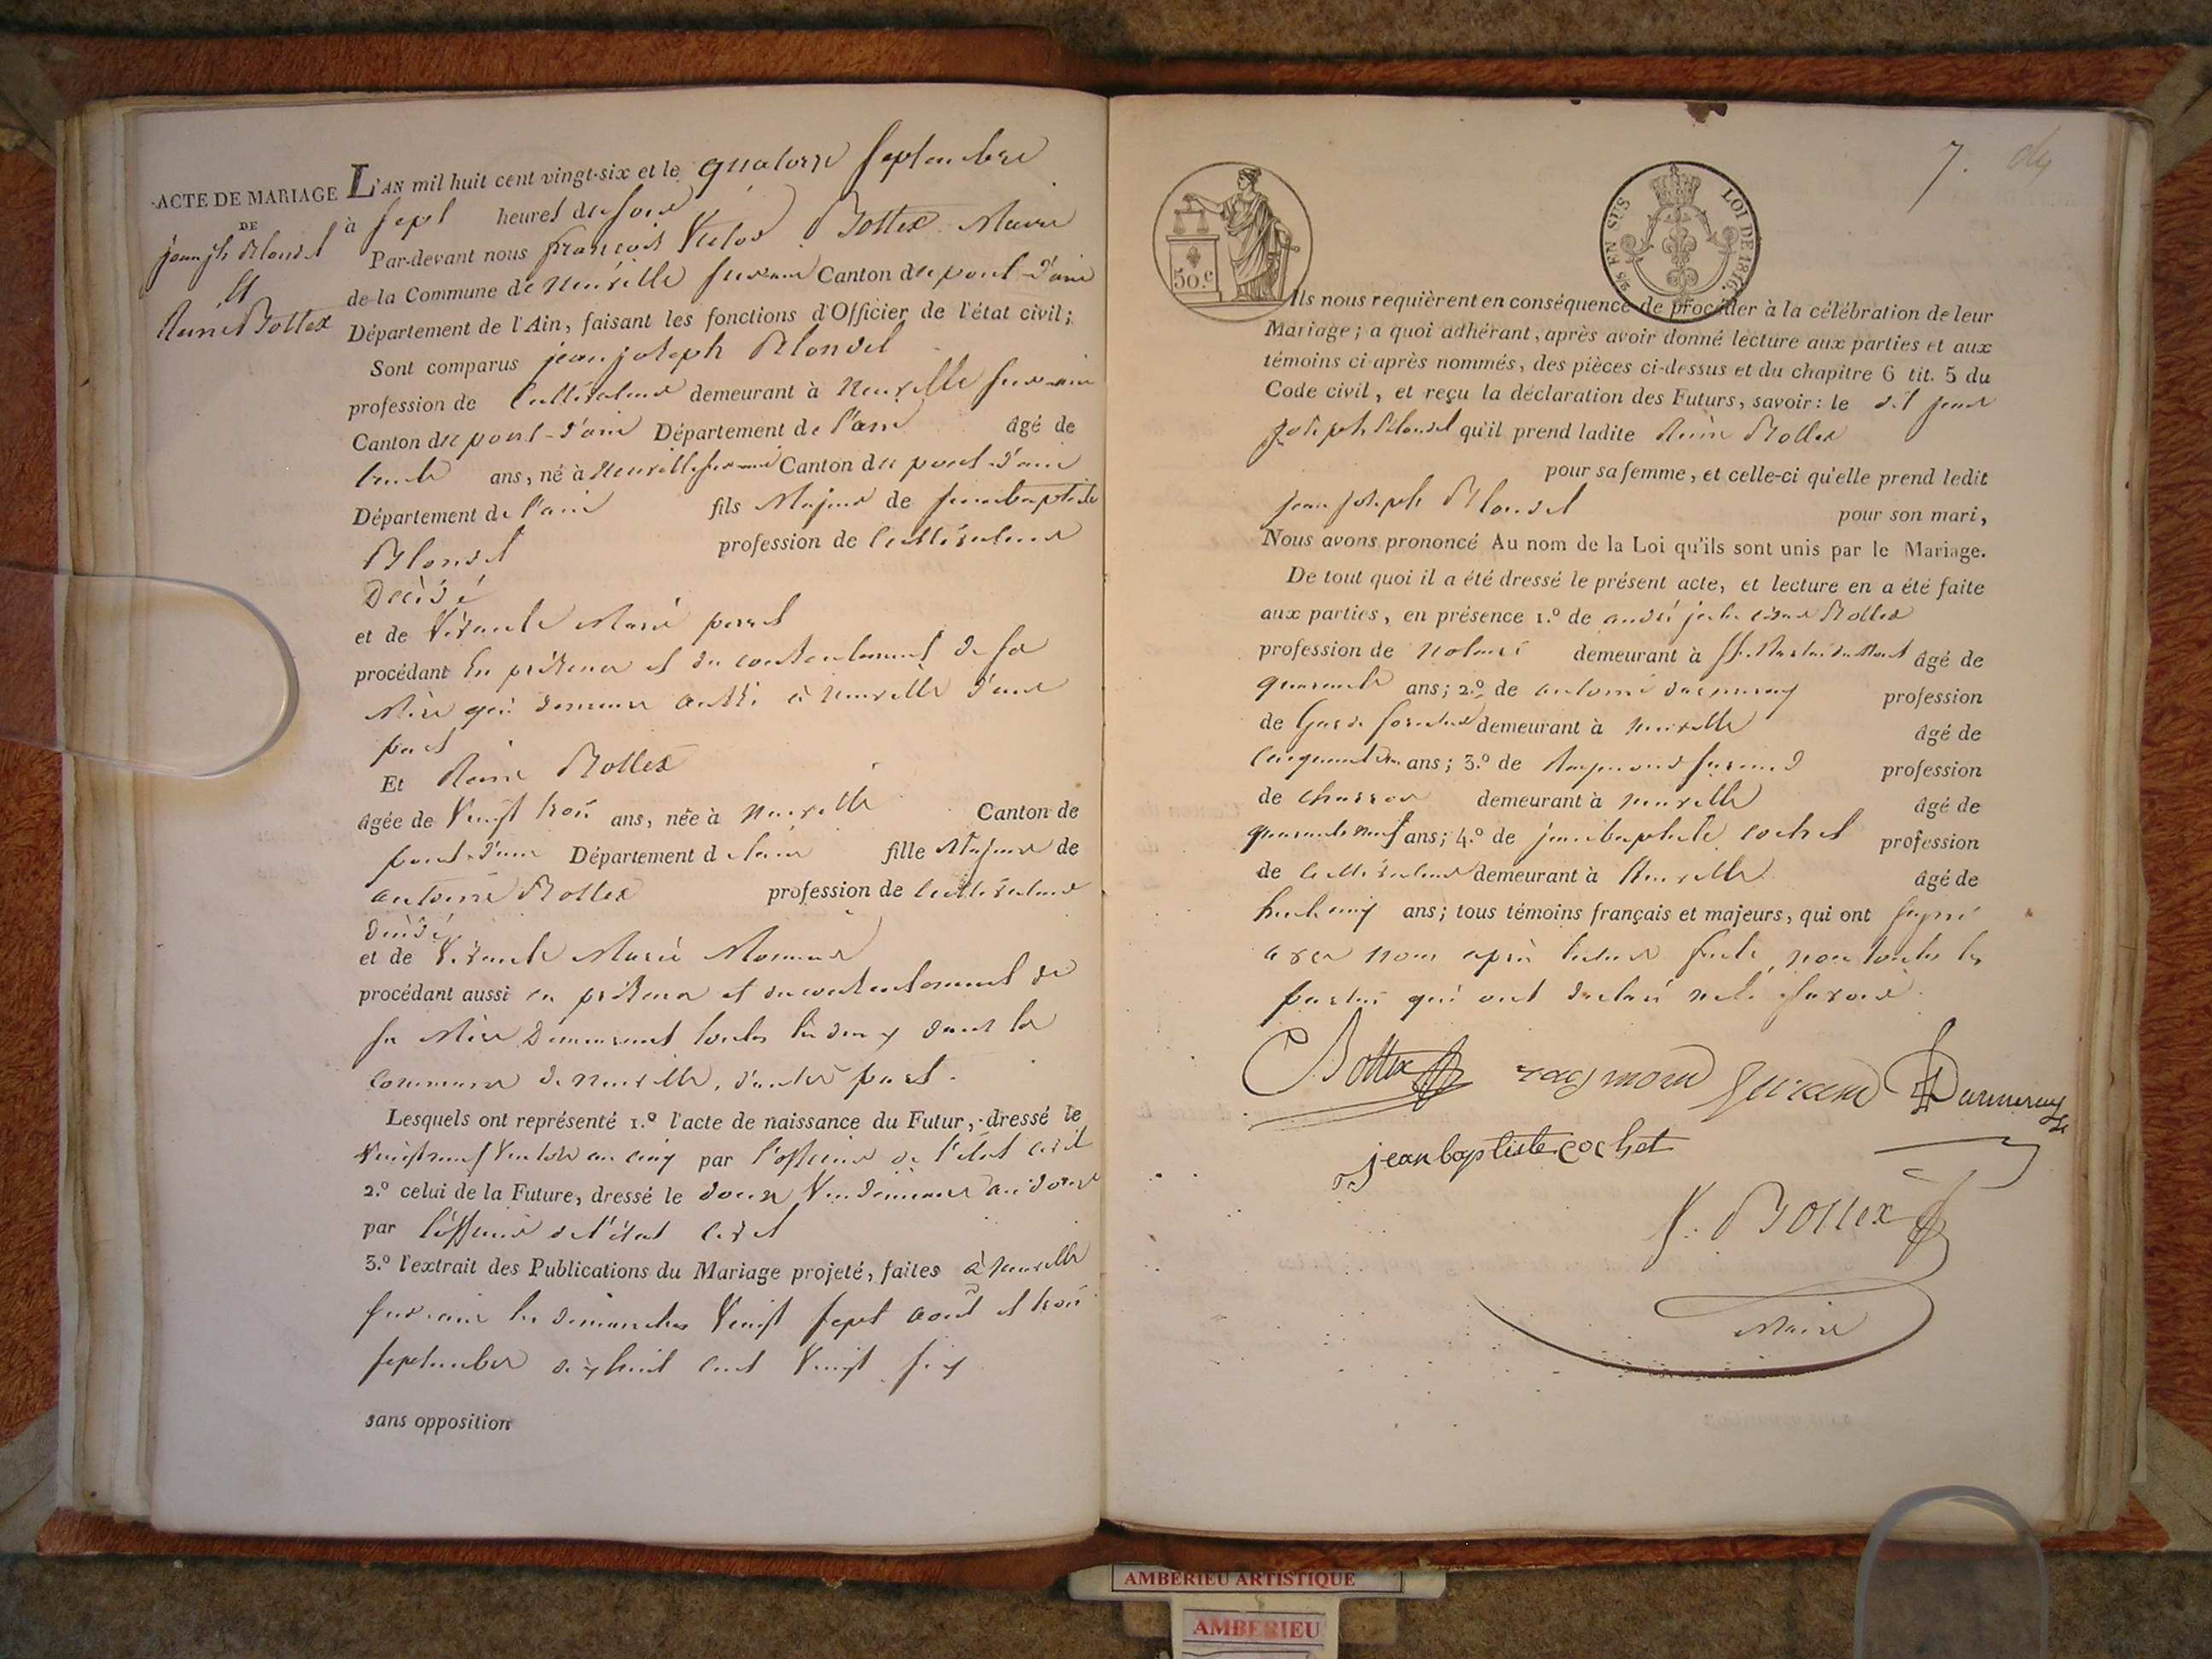 ACTE DE MARIAGE
DE
jean jh Blondel
Et
Reine Bottex
L'AN mil huit cent vingt-six et le quatorze septembre
à sept heures du soir
Par-devant nous françois Victor Bottex Maire
de la Commune de neuville sur ain Canton du pont-d'ain
Département de l'Ain, faisant les fonctions d'Officier de l'état civil;
Sont comparus jean joseph Blondel
profession de Cultivateur demeurant à Neuville sur ain
Canton du pont-d'ain Département de l'ain âgé de
trente ans, né à Neuville sur ain Canton du pont-d'ain
Département de l'ain fils Majeur de jean baptiste
Blondel profession de Cultivateur
Décédé
et de Vivante Marie
procédant en présence et du consentement de sa
Mère qui demeure aussi à neuville d'une
part
Et Reine Bottex
âgée de Vingt trois ans, née à neuville Canton de
pont-d'ain Département de l'ain fille Majeure de
antoine Bottex profession de Cultivateur
décédé
et de Vivante Marie
procédant aussi en présence et du consentement de
sa Mère Demeurant toutes les deux dans la
commune de neuville, d'autre part.
Lesquels ont représenté 1.º l'acte de naissance du Futur, dressé le
Vingt neuf Ventose an cinq par l'officier de l'état civil
2.º celui de la Future, dressé le douze Vendémiaire an douze
par l'officier de l'état civil
3.º l'extrait des Publications du Mariage projeté, faites à neuville
sur ain les dimanches Vingt sept août et trois
septembre dix huit cent Vingt six
sans opposition
7.
50.C
LOI DE 1816.
25 EN SUS
Ils nous requièrent en conséquence de procéder à la célébration de leur
Mariage; a quoi adhérant, après avoir donné lecture aux parties et aux
témoins ci-après nommés, des pièces ci-dessus et du chapitre 6 tit. 5 du
Code civil, et reçu la déclaration des Futurs, savoir: le dit jean
joseph Blondel qu'il prend ladite Reine Bottex
pour sa femme, et celle-ci qu'elle prend ledit
jean joseph Blondel pour son mari,
Nous avons prononcé Au nom de la Loi qu'ils sont unis par le Mariage.
De tout quoi il a été dressé le présent acte, et lecture en a été faite
aux parties, en présence 1.º de andré Bottex
profession de Notaire demeurant à St. Martin du Mont âgé de
quarante ans; 2.º de antoine profession
de Garde forestier demeurant à neuville âgé de
ans; 3.º de Raymond profession
de charron demeurant à neuville âgé de
quarante neuf ans; 4.º de jean baptiste cochet profession
de Cultivateur demeurant à Neuville âgé de
trente cinq ans; tous témoins français et majeurs, qui ont signé
avec nous après lecture faite, non toutes les
parties qui ont déclaré ne le savoir.
Bottex raymond
jean baptiste cochet
V. Bottex
Maire
AMBERIEU ARTISTIQUE
AMBERIEU